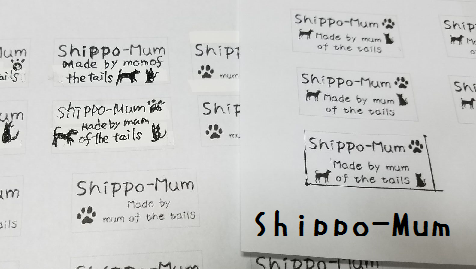 Shippo-Mum
Made by mom of
the tails
Shippo-Mum
Made by mum
of the tails
Shippo-Mum
Made by
mum of the tails
Shippo-Mum
Made by mum
of the tails
Shippo-Mum
Made by mum
of the tails
Shippo-Mum
Made by mum
of the tails
Shippo-Mum